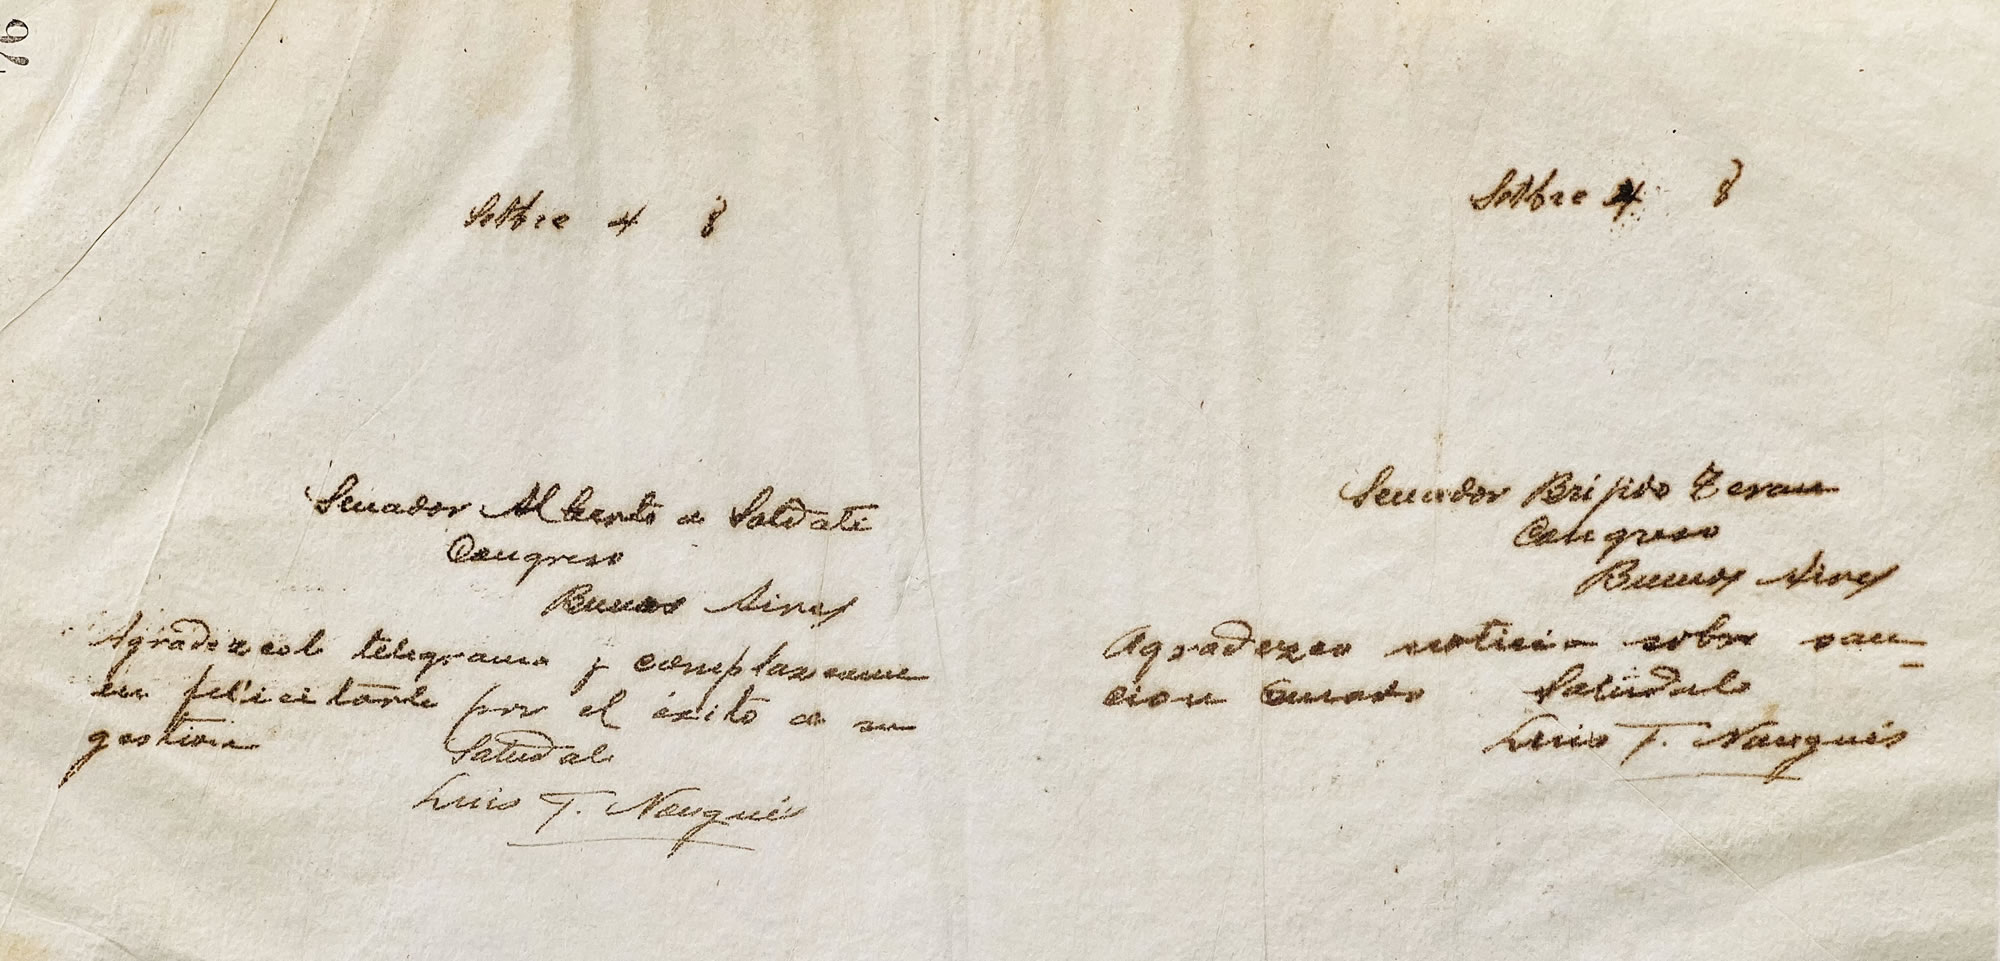 76
Setbre 4 8
Senador Alberto de Soldati
Congreso
Buenos Aires
Agradezcole telegrama y complazcome
en felicitarle por el éxito de su
gestion
Saludale
Luis F. Nougués
Setbre 4 8
Senador Brijido Teran
Congreso
Buenos Aires
Agradezco noticia sobre san-
cion Saludalo
Luis F. Nougués